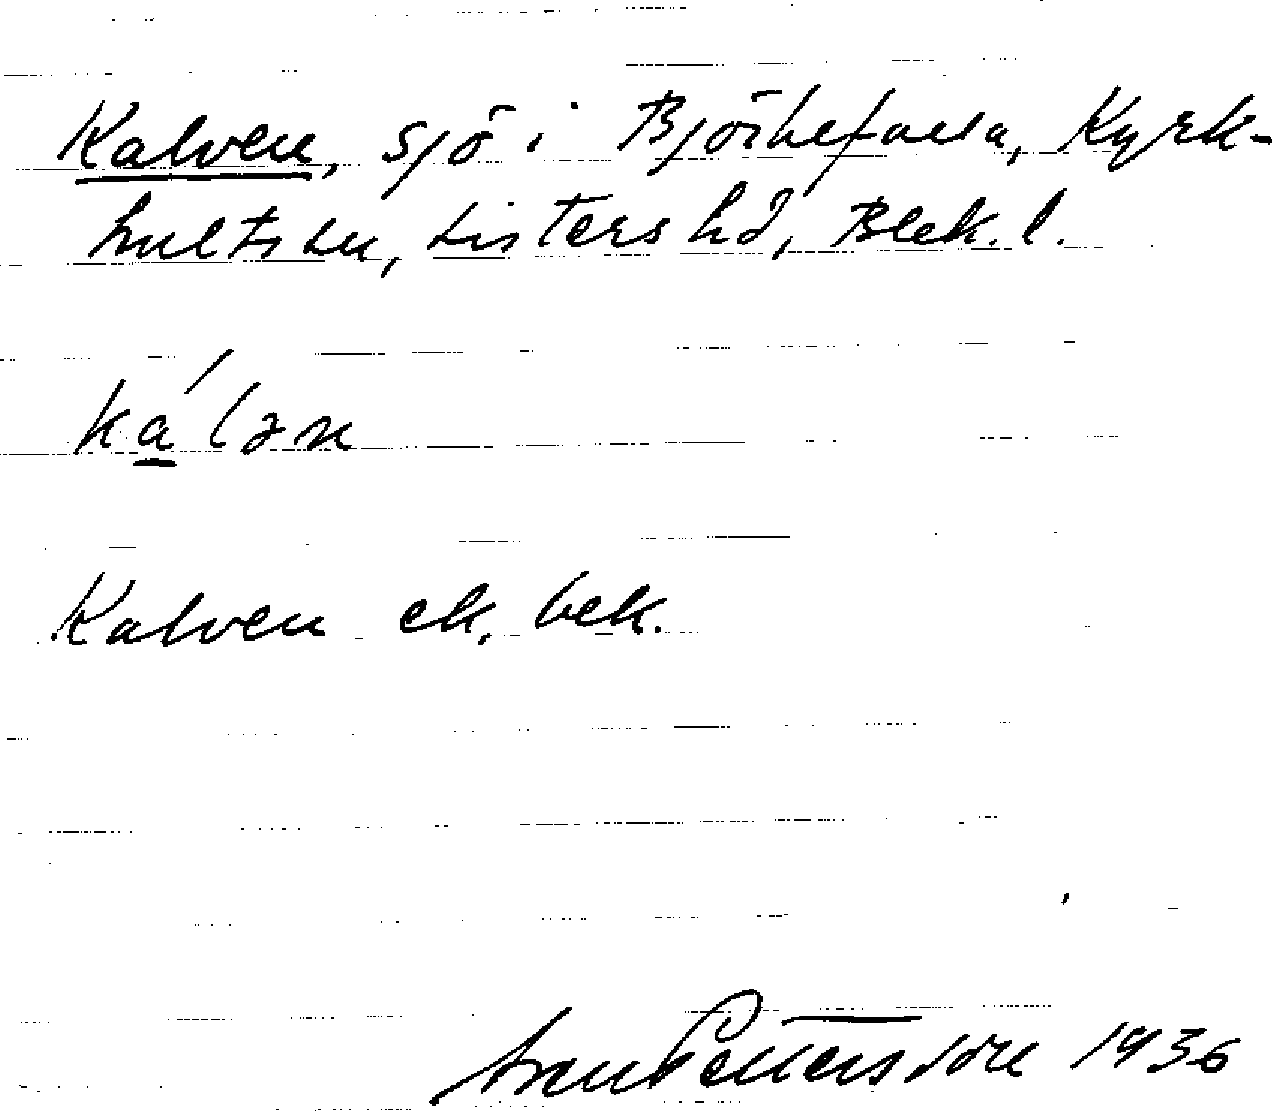 Kalven, sjö i Björkefalla, Kyrk-
hults sn, Listers hd, Blek. l.
ká̱lən
Kalven ek. bek.
Pettersson 1936